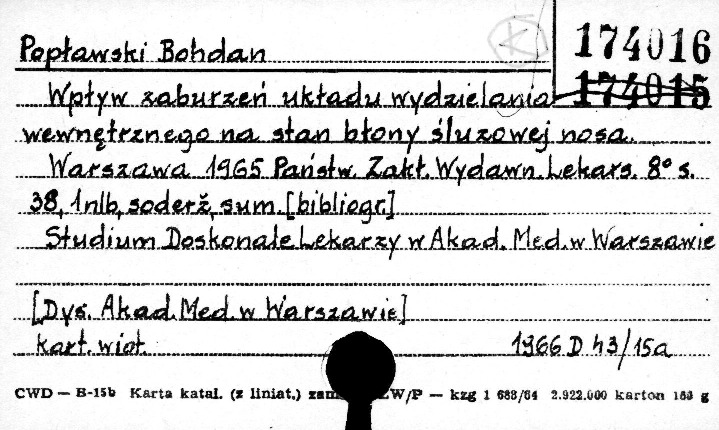 Popławski Bohdan
K
174016
174015
Wpływ zaburzeń układu wydzielania
wewnętrznego na stan błony śluzowej nosa.
Warszawa 1965 Państw. Zakł. Wydawn. Lekars. 8° s.
38, 1nlb, soderž, sum. [bibliogr.]
Studium Doskonale Lekarzy w Akad. Med. w Warszawie
[Dys. Akad. Med. w Warszawie]
kart. wiot.
1966 D 43/15a
CWD — B-15b Karta katal. (z liniat.) zam. ZW/P — kzg 1 688/64 2.922.000 karton 180 g